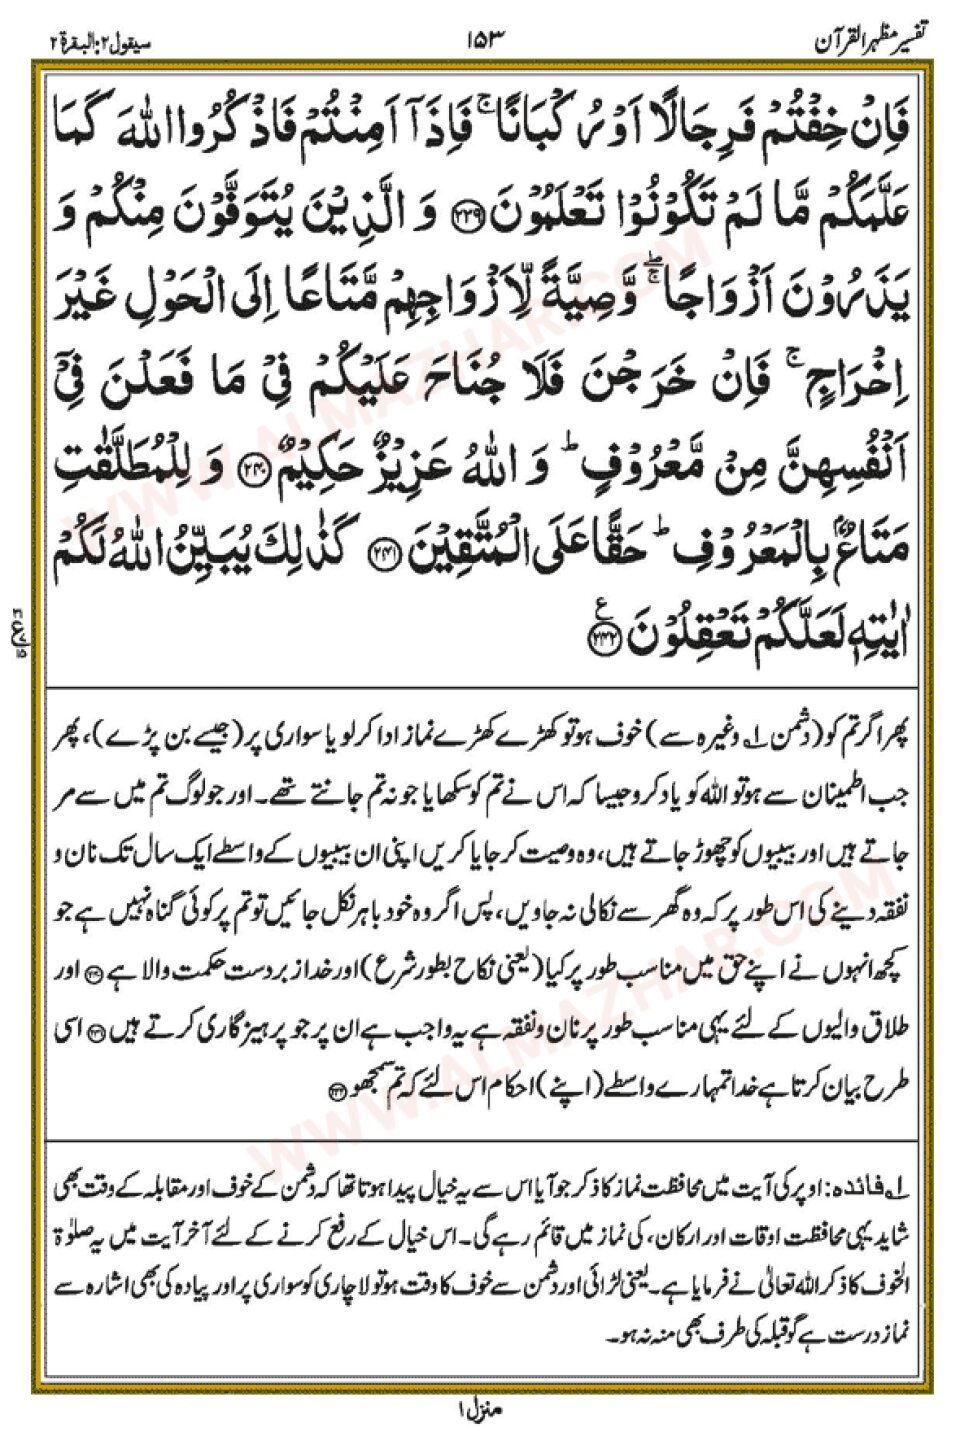 تفسیر مظہر القرآن
۱۵۳
سیقول ۲: البقرۃ ۲
فَاِنْ خِفْتُمْ فَرِجَالًا اَوْ رُكْبَانًا ۚ فَاِذَاۤ اَمِنْتُمْ فَاذْكُرُوا اللّٰهَ كَمَا
عَلَّمَكُمْ مَّا لَمْ تَكُوْنُوْا تَعْلَمُوْنَ ﴿۲۳۹﴾ وَ الَّذِیْنَ یُتَوَفَّوْنَ مِنْكُمْ وَ
یَذَرُوْنَ اَزْوَاجًا ۖۚ وَّصِیَّةً لِّاَزْوَاجِهِمْ مَّتَاعًا اِلَى الْحَوْلِ غَیْرَ
اِخْرَاجٍ ۚ فَاِنْ خَرَجْنَ فَلَا جُنَاحَ عَلَیْكُمْ فِیْ مَا فَعَلْنَ فِیْۤ
اَنْفُسِهِنَّ مِنْ مَّعْرُوْفٍ ؕ وَ اللّٰهُ عَزِیْزٌ حَكِیْمٌ ﴿۲۴۰﴾ وَ لِلْمُطَلَّقٰتِ
مَتَاعٌۢ بِالْمَعْرُوْفِ ؕ حَقًّا عَلَى الْمُتَّقِیْنَ ﴿۲۴۱﴾ كَذٰلِكَ یُبَیِّنُ اللّٰهُ لَكُمْ
اٰیٰتِهٖ لَعَلَّكُمْ تَعْقِلُوْنَ ﴿۲۴۲﴾ ع
پھر اگر تم کو (دشمن ۱؎ وغیرہ سے) خوف ہو تو کھڑے کھڑے نماز ادا کرلو یا سواری پر (جیسے بن پڑے)، پھر
جب اطمینان سے ہو تو اللہ کو یاد کرو جیسا کہ اس نے تم کو سکھایا جو نہ تم جانتے تھے۔ اور جو لوگ تم میں سے مر
جاتے ہیں اور بیبیوں کو چھوڑ جاتے ہیں، وہ وصیت کر جایا کریں اپنی ان بیبیوں کے واسطے ایک سال تک نان و
نفقہ دینے کی اس طور پر کہ وہ گھر سے نکالی نہ جاویں، پس اگر وہ خود باہر نکل جائیں تو تم پر کوئی گناہ نہیں ہے جو
کچھ انہوں نے اپنے حق میں مناسب طور پر کیا (یعنی نکاح بطور شرع) اور خدا زبردست حکمت والا ہے ﴿۲۴۰﴾ اور
طلاق والیوں کے لئے یہی مناسب طور پر نان و نفقہ ہے یہ واجب ہے ان پر جو پرہیزگاری کرتے ہیں ﴿۲۴۱﴾ اسی
طرح بیان کرتا ہے خدا تمہارے واسطے (اپنے) احکام اس لئے کہ تم سمجھو ﴿۲۴۲﴾
۱؎ فائدہ: اوپر کی آیت میں محافظت نماز کا ذکر جو آیا اس سے یہ خیال پیدا ہوتا تھا کہ دشمن کے خوف اور مقابلہ کے وقت بھی
شاید یہی محافظت اوقات اور ارکان، کی نماز میں قائم رہے گی۔ اس خیال کے رفع کرنے کے لئے آخر آیت میں یہ صلوٰۃ
الخوف کا ذکر اللہ تعالیٰ نے فرمایا ہے۔ یعنی لڑائی اور دشمن سے خوف کا وقت ہو تو لاچاری کو سواری پر اور پیادہ کی بھی اشارہ سے
نماز درست ہے گو قبلہ کی طرف بھی منہ نہ ہو۔
منزل ۱
WWW.ALMAZHAR.COM
WWW.ALMAZHAR.COM